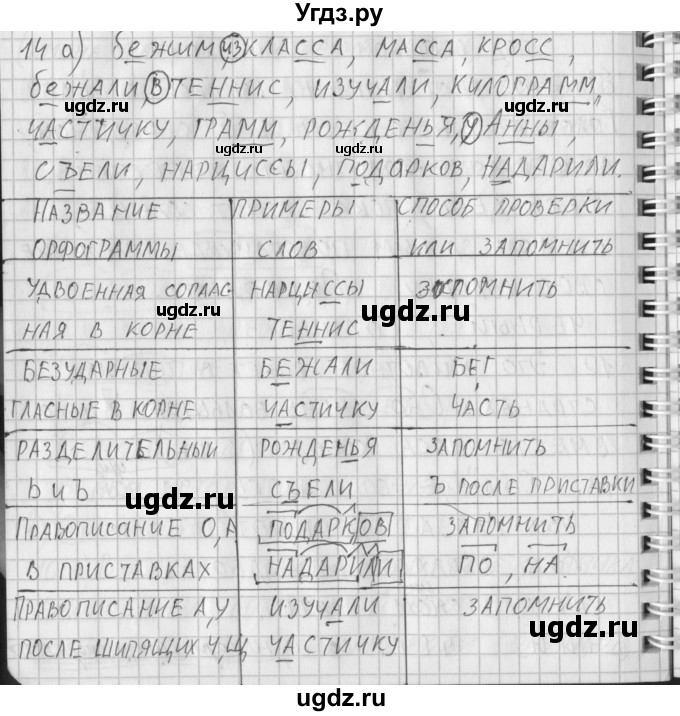 Угдз.ру
14 а) бежим, из класса, масса, кросс,
бежали, в теннис, изучали, килограмм,
частичку, грамм, рожденья, у Анны,
съели, нарциссы, подарков, надарили.
НАЗВАНИЕ ПРИМЕРЫ СПОСОБ ПРОВЕРКИ
ОРФОГРАММЫ СЛОВ ИЛИ ЗАПОМНИТЬ
УДВОЕННАЯ СОГЛАС НАРЦИССЫ ЗАПОМНИТЬ
НАЯ В КОРНЕ ТЕННИС
БЕЗУДАРНЫЕ БЕЖАЛИ БЕГ
ГЛАСНЫЕ В КОРНЕ ЧАСТИЧКУ ЧАСТЬ
РАЗДЕЛИТЕЛЬНЫЙ РОЖДЕНЬЯ ЗАПОМНИТЬ
Ь и Ъ СЪЕЛИ Ъ ПОСЛЕ ПРИСТАВКИ
ПРАВОПИСАНИЕ О, А ПОДАРКОВ ЗАПОМНИТЬ
В ПРИСТАВКАХ НАДАРИЛИ ПО, НА.
ПРАВОПИСАНИЕ А, У ИЗУЧАЛИ ЗАПОМНИТЬ
ПОСЛЕ ШИПЯЩИХ Ч, Щ ЧАСТИЧКУ
ugdz.ru
ugdz.ru
ugdz.ru
ugdz.ru
ugdz.ru
ugdz.ru
ugdz.ru
ugdz.ru
ugdz.ru
ugdz.ru
ugdz.ru
ugdz.ru
ugdz.ru
ugdz.ru